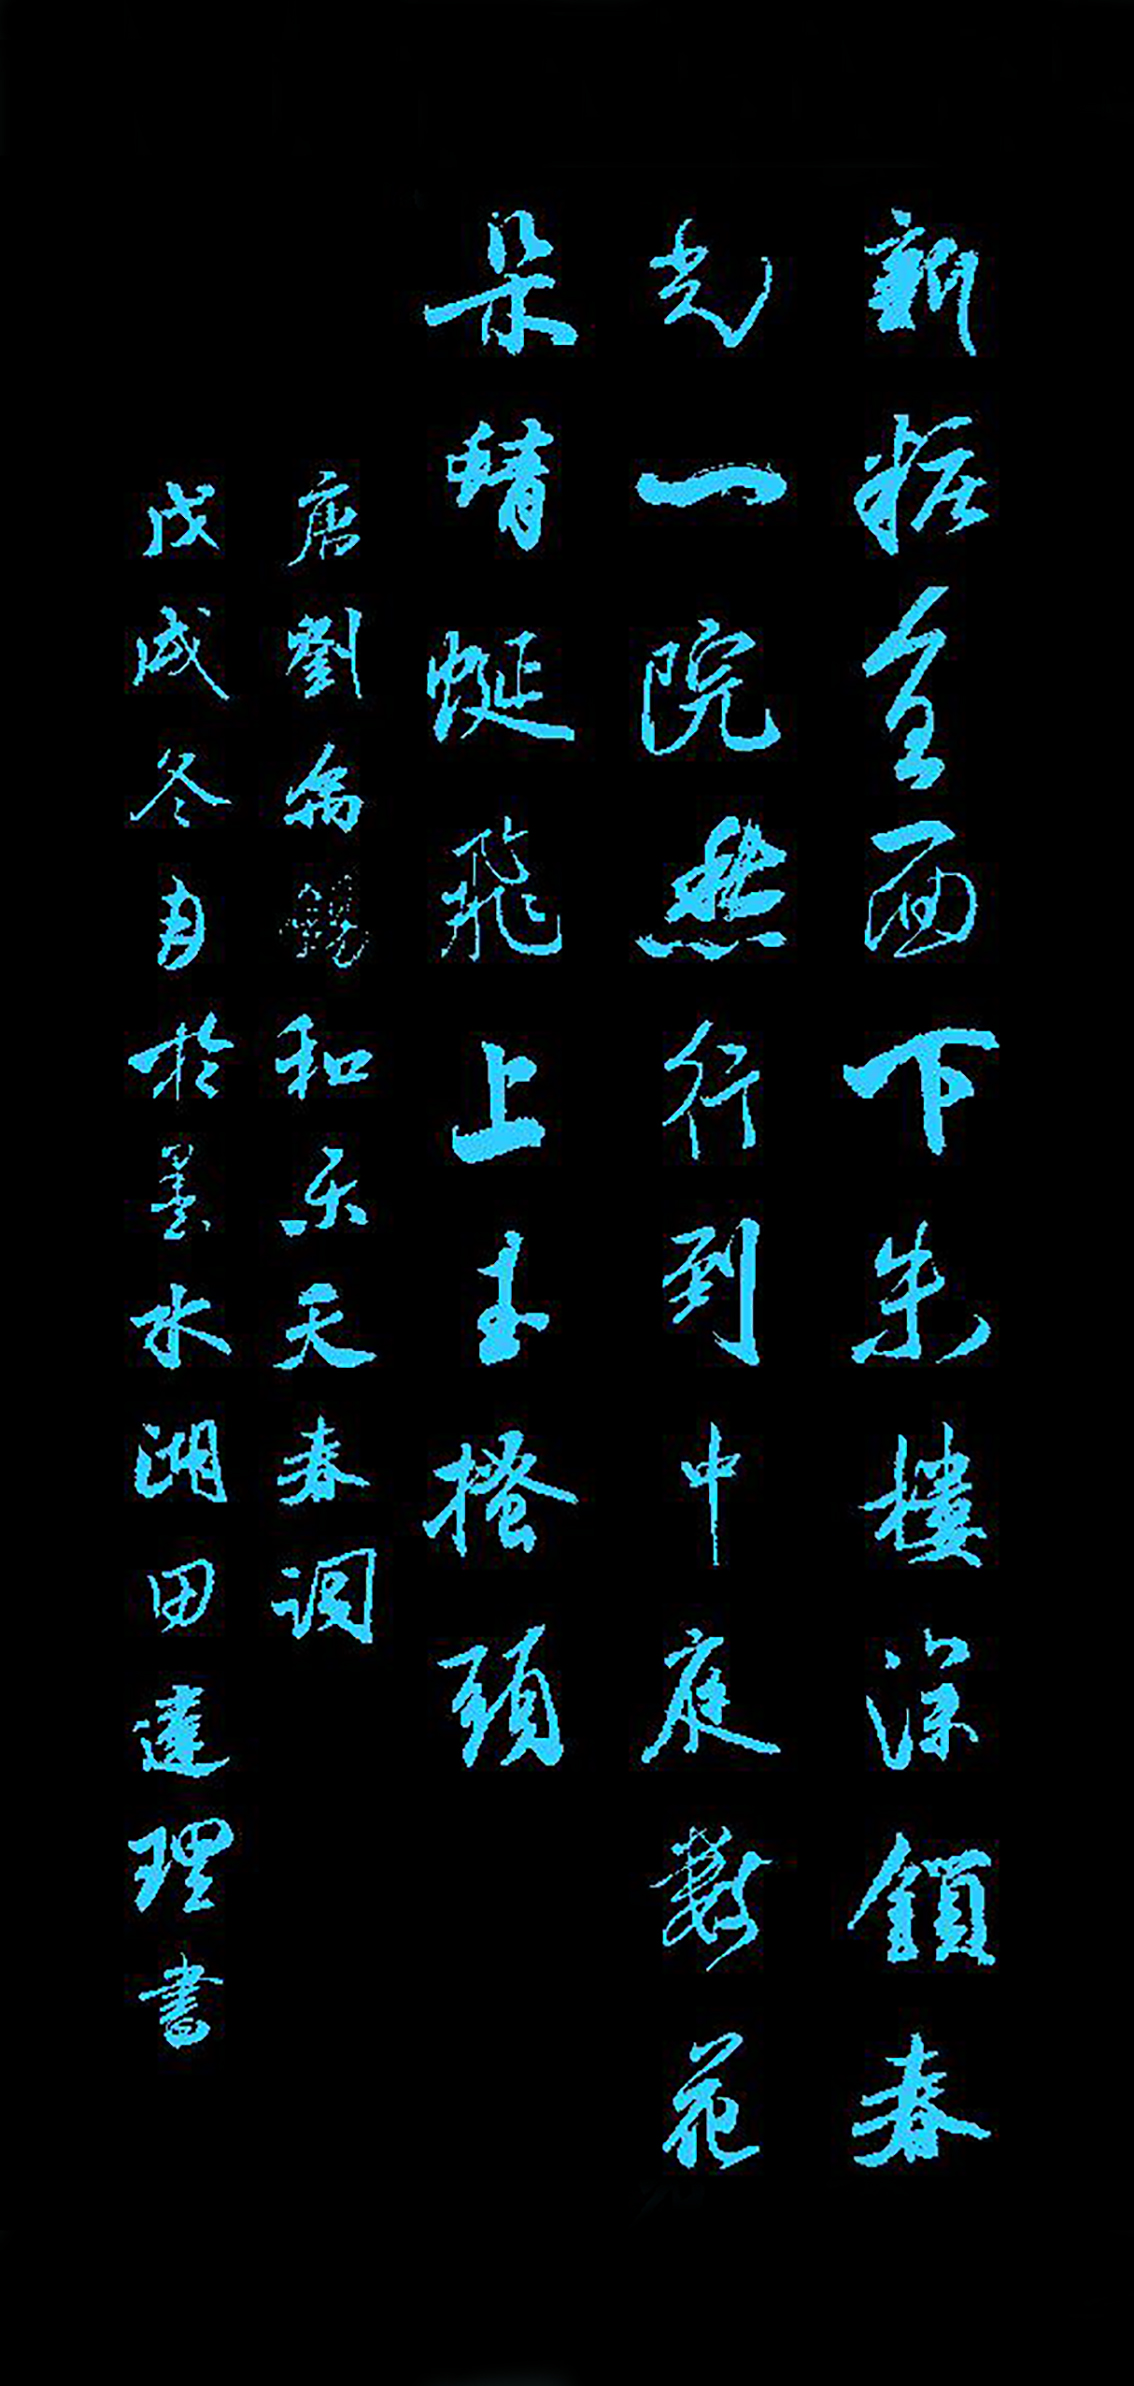 新粧宜面下朱樓深鎖春
光一院愁行到中庭數花
朵蜻蜓飛上玉搔頭
唐劉禹錫和乐天春词
戊戌冬月於墨水湖田達理書